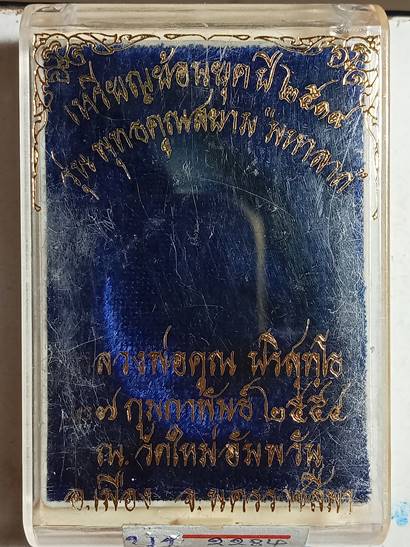 เหรียญย้อนยุค ปี ๒๕๑๙
รุ่น พุทธคุณสยาม "มหาลาภ"
ลวงพ่อคูณ ปริสุทฺโธ
๗ กุมภาพันธ์ ๒๕๕๔
ณ. วัดใหม่อัมพวัน
อ.เมือง จ.นครราชสีมา
2284